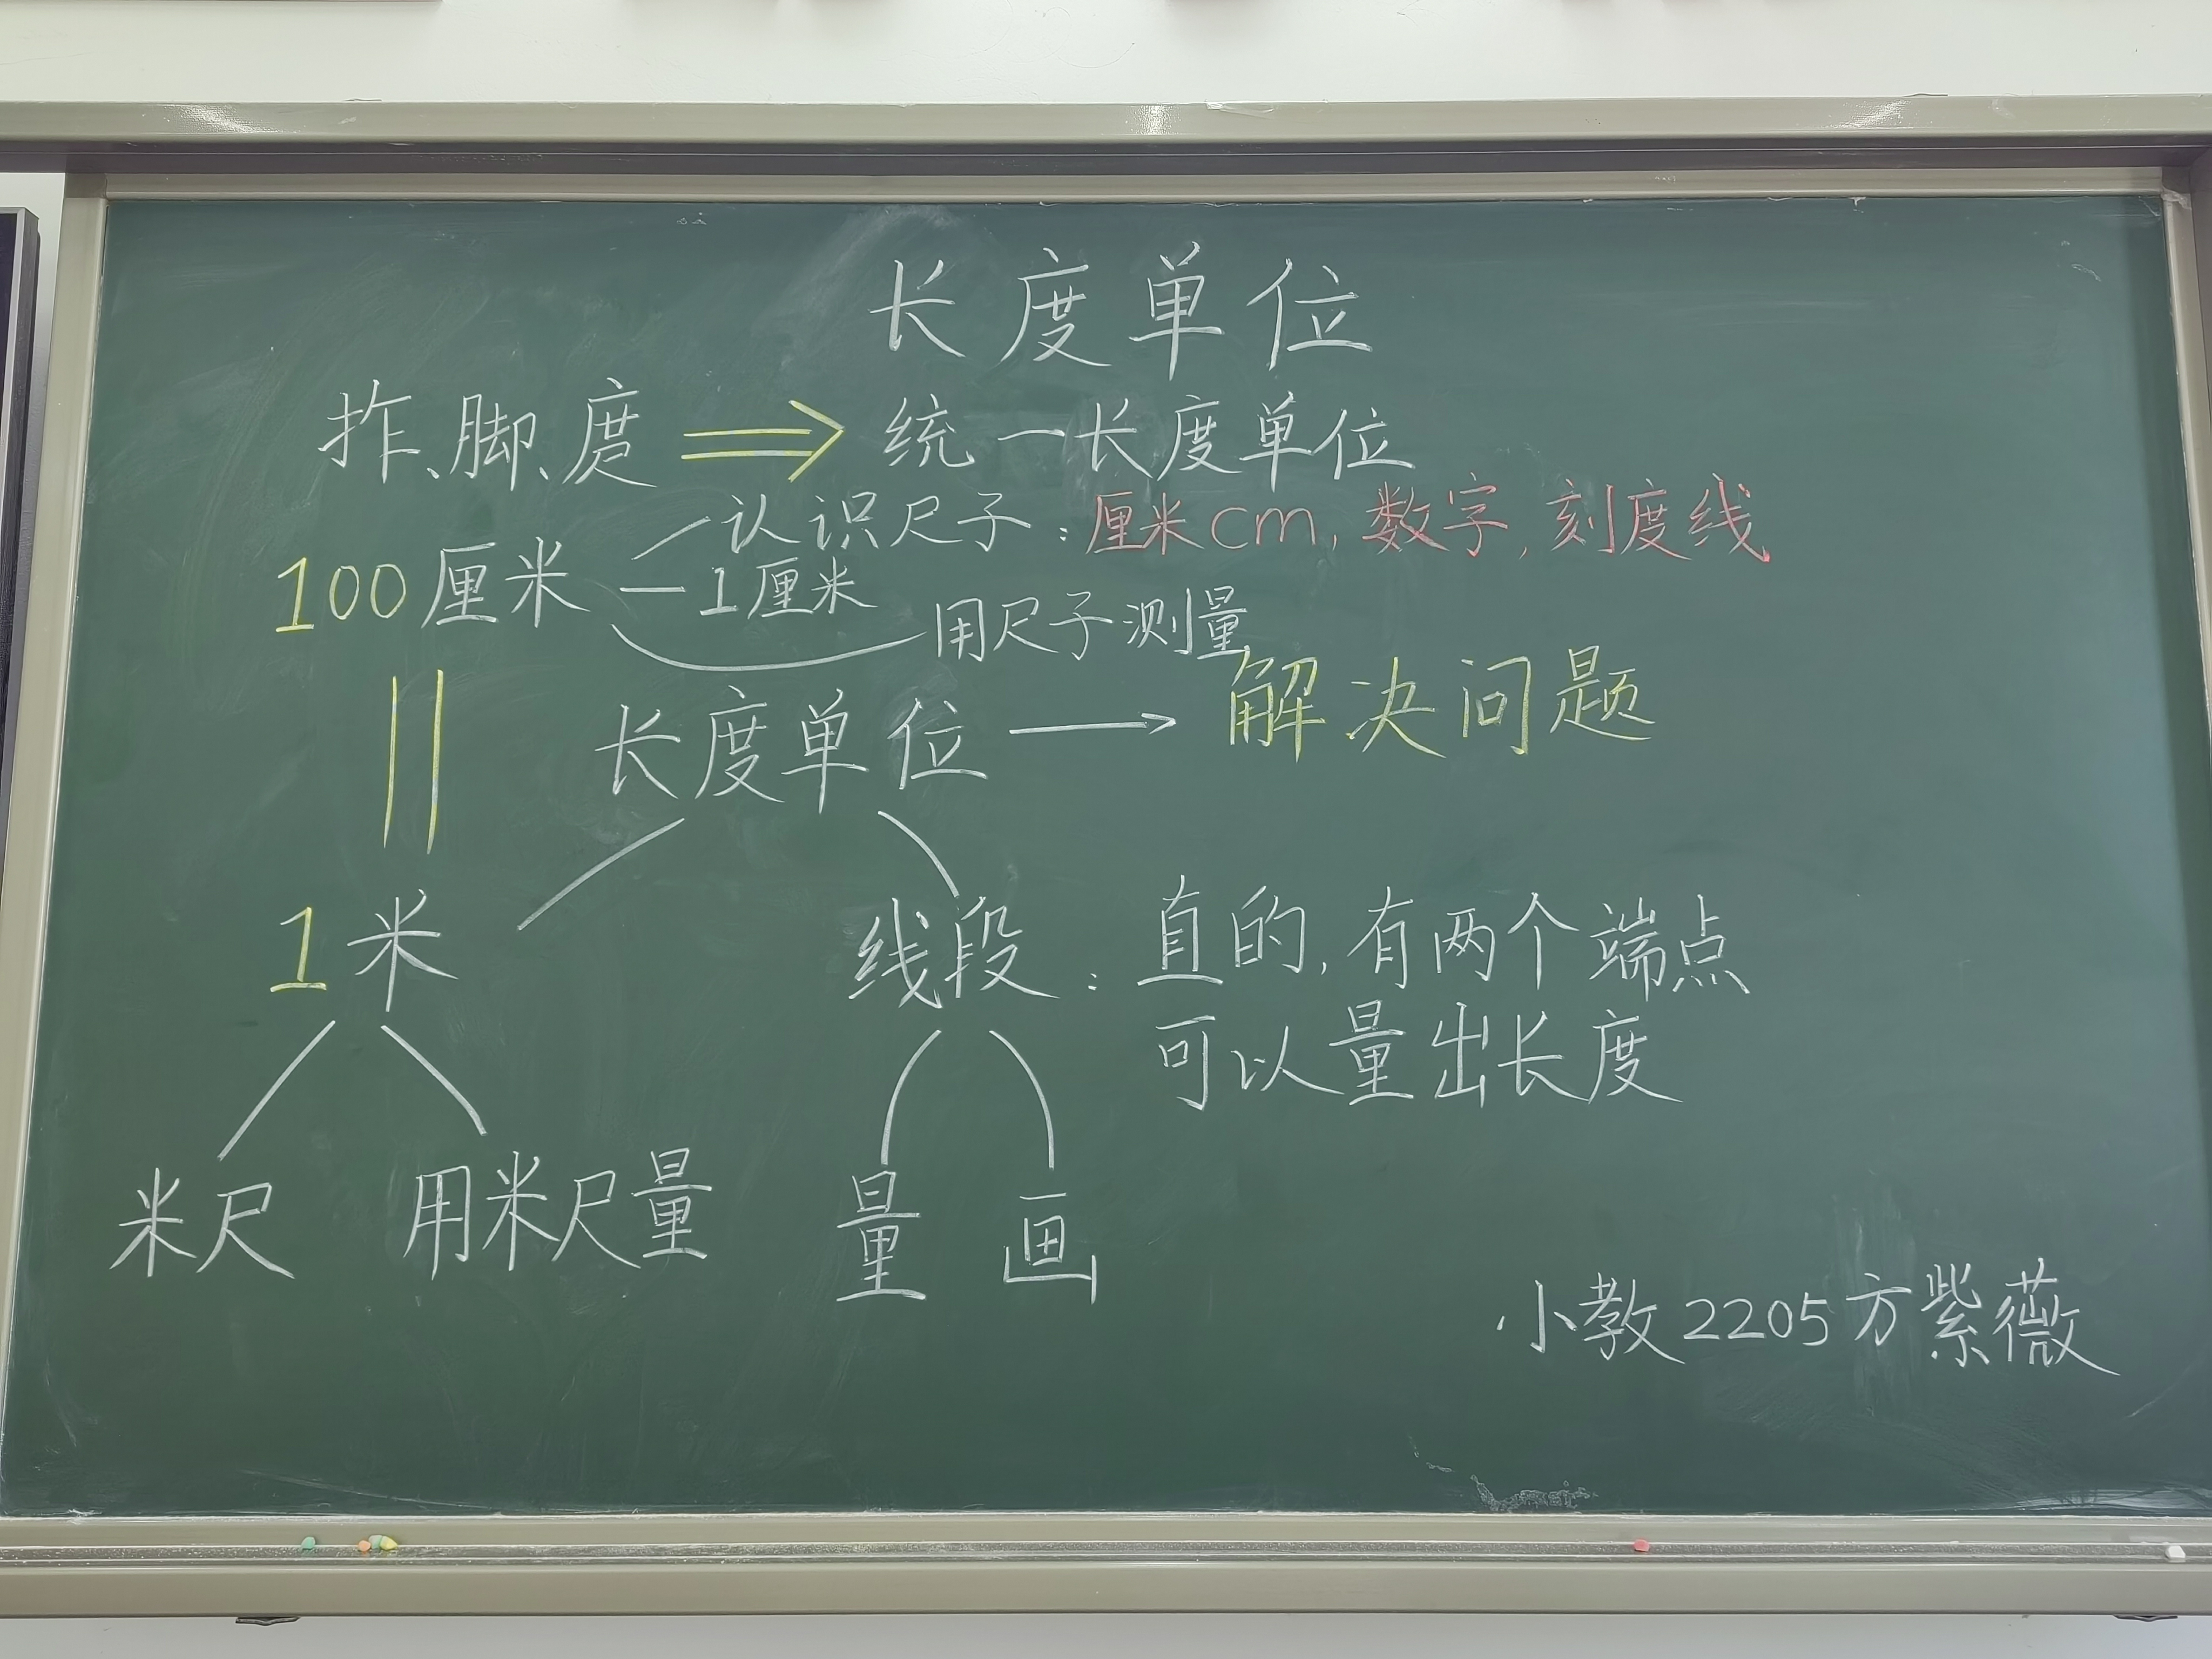 长度单位
拃、脚、庹 ⇒ 统一长度单位
认识尺子：厘米cm，数字，刻度线
100厘米 — 1厘米
用尺子测量
||
长度单位 → 解决问题
1米
线段：直的，有两个端点
可以量出长度
米尺 用米尺量 量 画
小教2205方紫薇